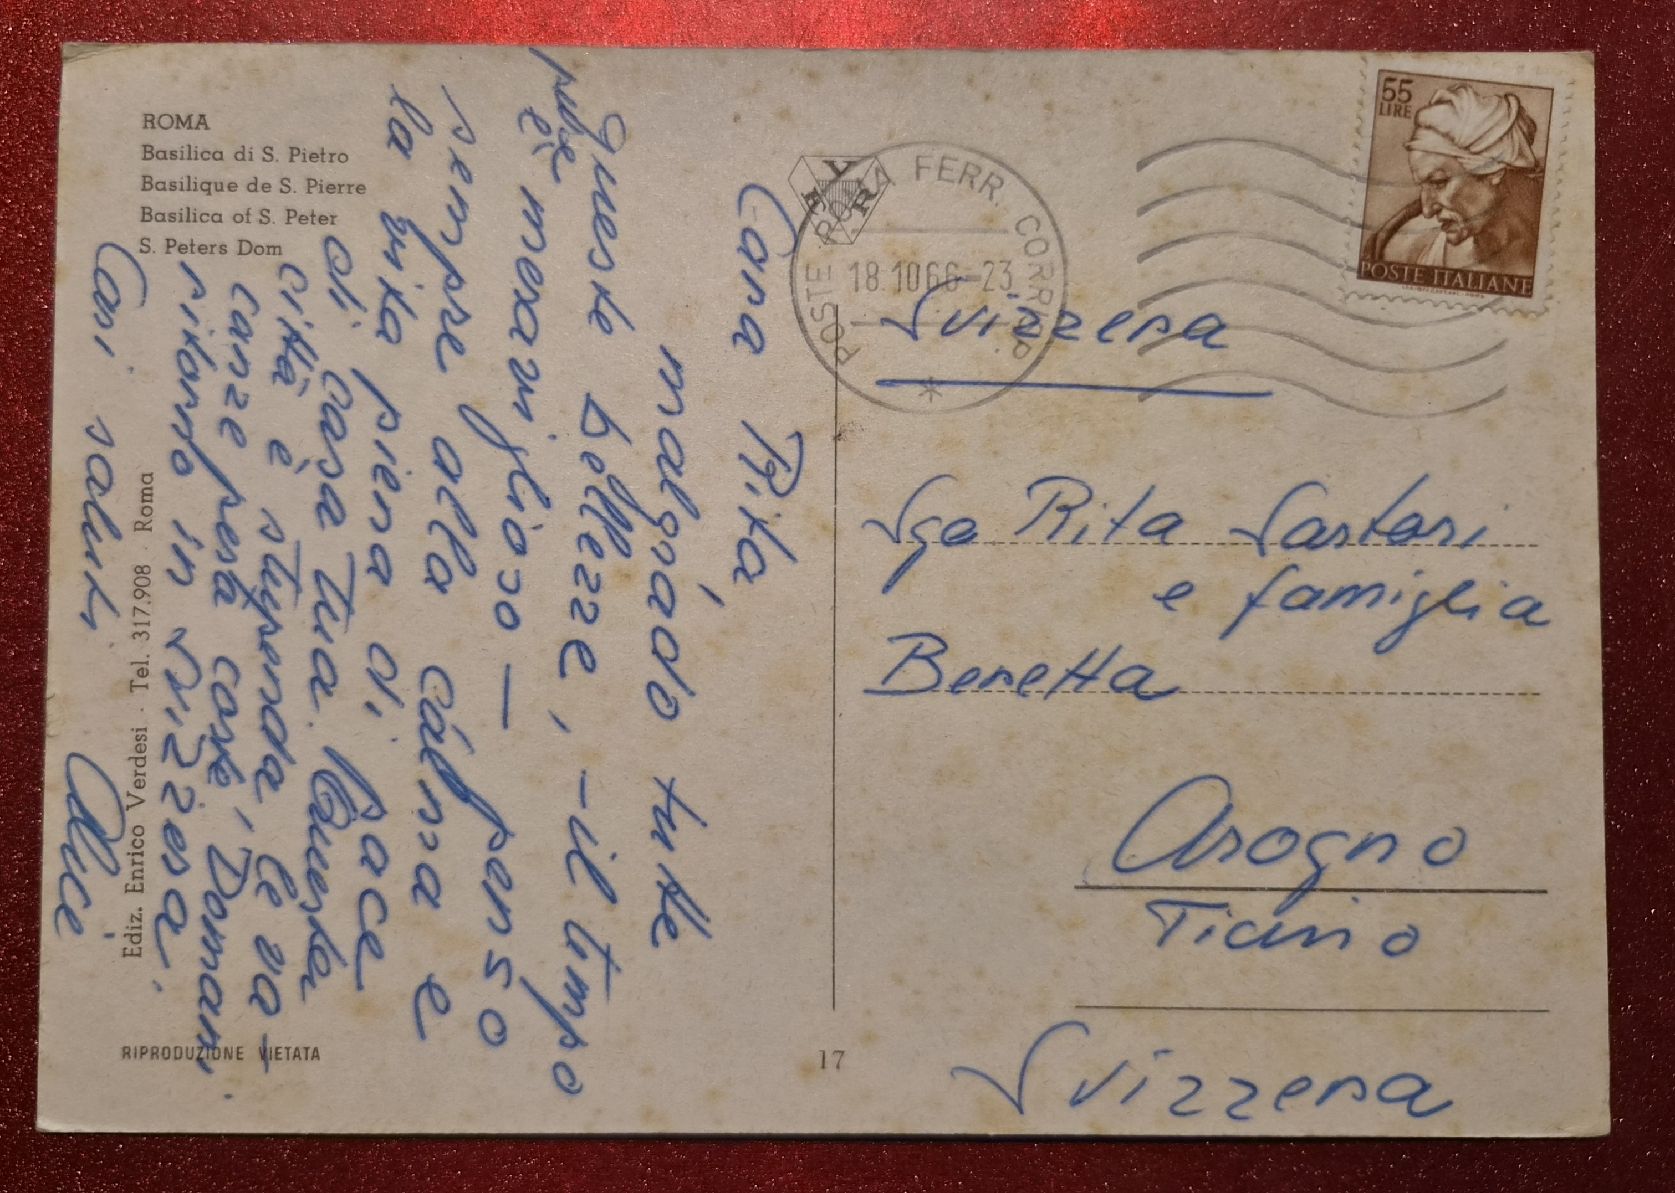 ROMA
Basilica di S. Pietro
Basilique de S. Pierre
Basilica of S. Peter
S. Peters Dom
Cara Rita,
malgrado tutte
queste bellezze, – il tempo
pure
è meraviglioso –
penso
sempre alla calma e
la vita piena di pace
di casa tua. Questa
città è stupenda, le va-
canze però cosse, Domani
ritorno in Svizzera.
Cari saluti
Alice
Ediz. Enrico Verdesi · Tel. 317.908 · Roma
RIPRODUZIONE VIETATA
17
EVR
POSTE ROMA FERR. CORRISP.
18.10 66-23
55
LIRE
POSTE ITALIANE
Svizzera
Sga Rita Sartori
e famiglia
Beretta
Arogno
Ticino
Svizzera